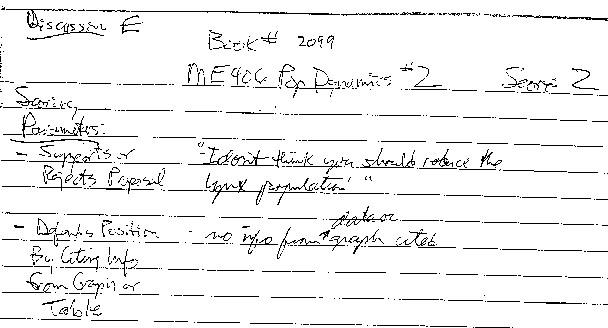 Discussion E
Book # 2099
ME406 Pop Dynamics #2 Score: 2
Scoring
Parameters:
- Supports or "I don't think you should reduce the
Rejects Proposal lynx population"
data or
- Defends Position - no info from graph cited
By Citing Info
from Graph or
Table